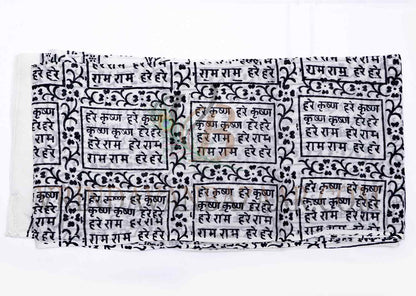 हरे राम हरे राम
राम राम हरे हरे
हरे राम हरे राम
राम राम हरे हरे
हरे राम हरे राम
राम राम हरे हरे
हरे कृष्ण हरे कृष्ण
कृष्ण कृष्ण हरे हरे
हरे राम हरे राम
राम राम हरे हरे
हरे कृष्ण हरे कृष्ण
कृष्ण कृष्ण हरे हरे
हरे राम हरे राम
राम राम हरे हरे
हरे कृष्ण हरे कृष्ण
कृष्ण कृष्ण हरे हरे
हरे राम हरे राम
राम राम हरे हरे
हरे कृष्ण हरे कृष्ण
कृष्ण कृष्ण हरे हरे
हरे राम हरे राम
राम राम हरे हरे
हरे कृष्ण हरे कृष्ण
कृष्ण कृष्ण हरे हरे
हरे राम हरे राम
राम राम हरे हरे
हरे कृष्ण हरे कृष्ण
कृष्ण कृष्ण हरे हरे
हरे राम हरे राम
राम राम हरे हरे